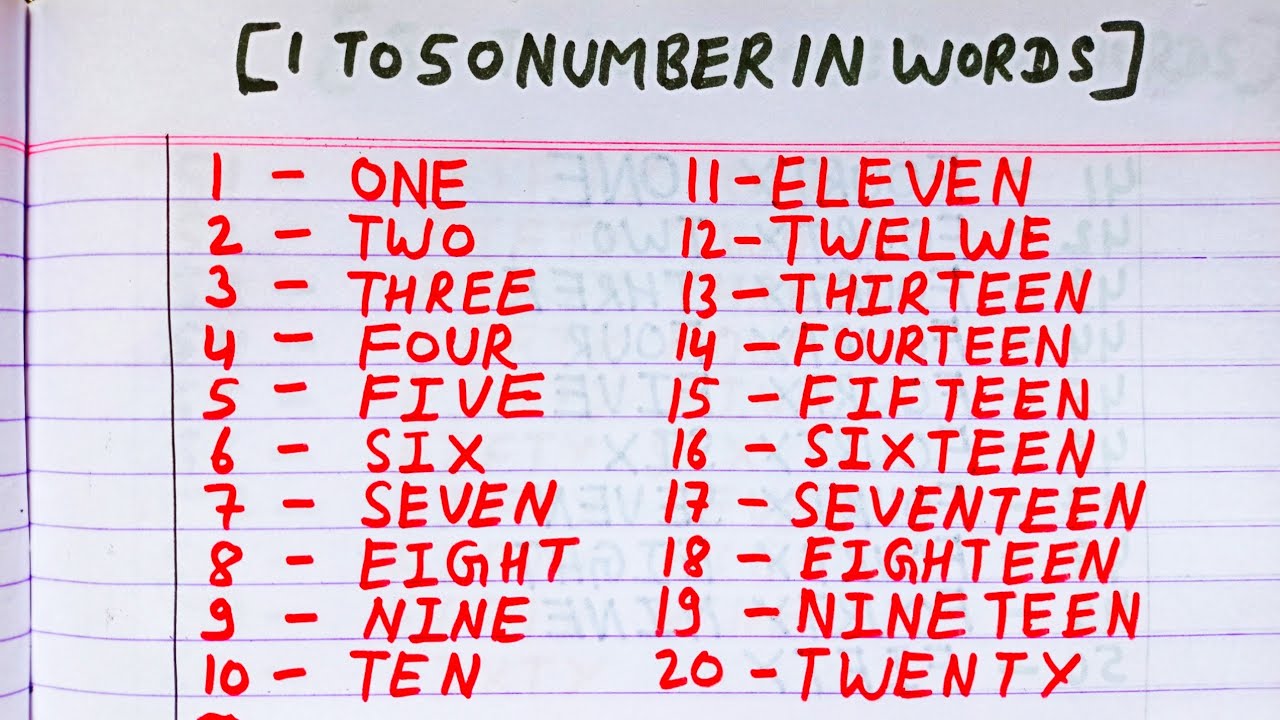 [1 TO 50 NUMBER IN WORDS]
1 - ONE 11 - ELEVEN
2 - TWO 12 - TWELWE
3 - THREE 13 - THIRTEEN
4 - FOUR 14 - FOURTEEN
5 - FIVE 15 - FIFTEEN
6 - SIX 16 - SIXTEEN
7 - SEVEN 17 - SEVENTEEN
8 - EIGHT 18 - EIGHTEEN
9 - NINE 19 - NINETEEN
10 - TEN 20 - TWENTY